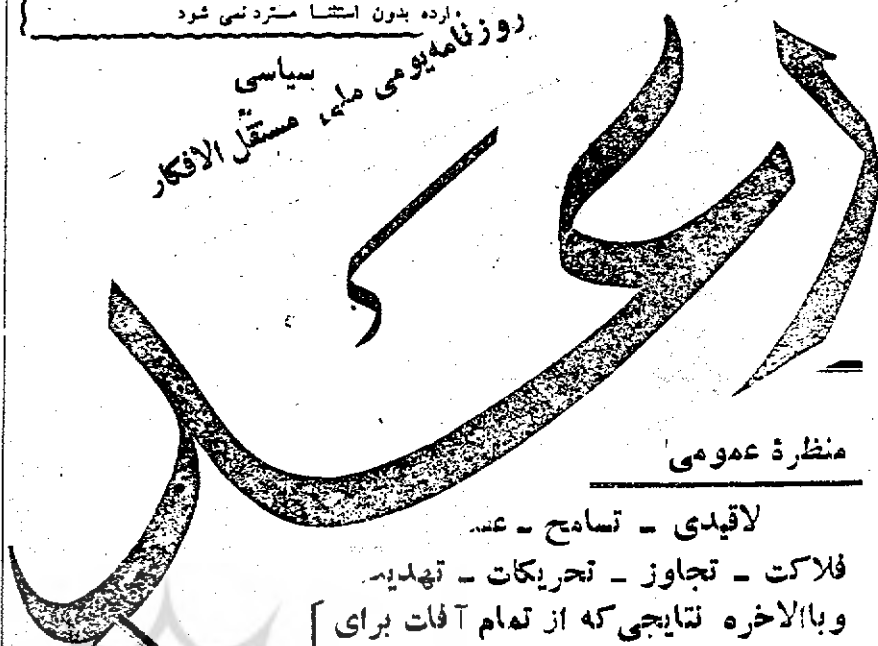 ارده بدون استثنا مسترد نمی شود
روزنامه یومی ملی
سیاسی
مستقل الافکار
منظرهٔ عمومی
لاقیدی ـ تسامح ـ
فلاکت ـ تجاوز ـ تحریکات ـ
وباالاخره نتایجی که از تمام آفات برای [